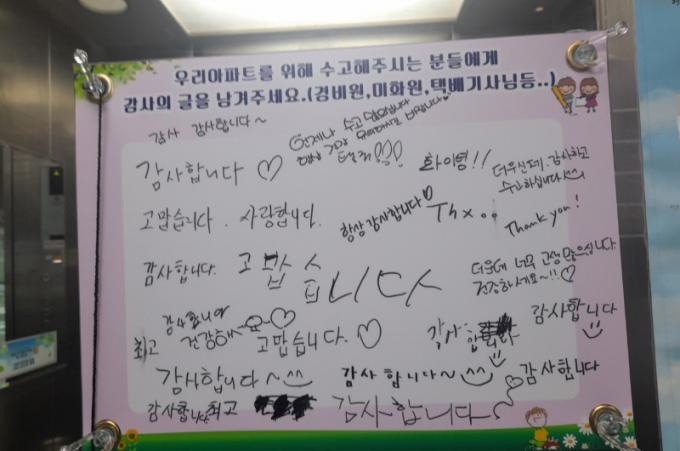 우리아파트를 위해 수고해주시는 분들에게
감사의 글을 남겨주세요.(경비원,미화원,택배기사님등..)
감사 감사합니다~
언제나 수고 많으십니다
항상 건강
감사합니다 ♡
화이팅!!
더우신데, 감사하고
수고하십니다
고맙습니다. 사랑합니다.
항상 감사합니다♡
Thx..
Thank you!
감사합니다.
고맙습니다
더운데 너무 고생 많으십니다.
건강하세요~!!♡
감사합니다
최고
건강해
고맙습니다. ♡
감사
합니다
감사합니다
감사합니다~^^
감사합니다~
감사합니다
감사합니다 최고
감사합니다